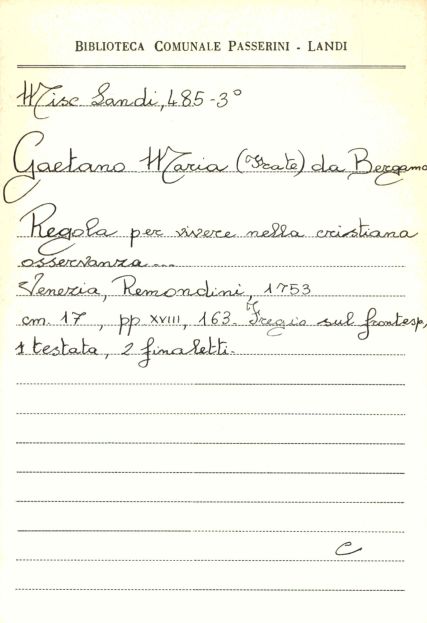 BIBLIOTECA COMUNALE PASSERINI - LANDI
Misc Landi, 485-3°
Gaetano Maria (Frate) da Bergamo
Regola per vivere nella cristiana
osservanza...
Venezia, Remondini, 1753
cm. 17, pp XVIII, 163. Fregio sul frontesp,
1 testata, 2 finaletti.
C